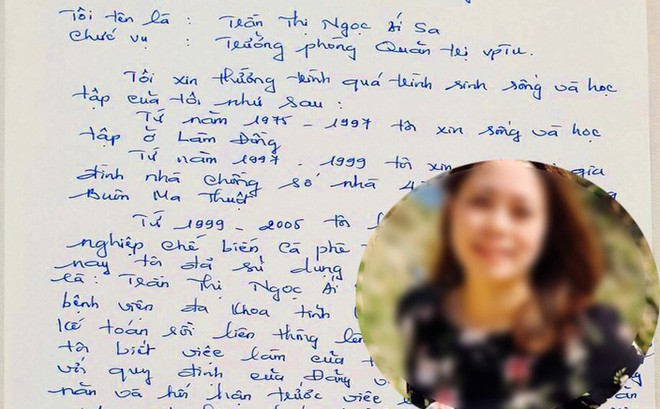 Tôi tên là : Trần Thị Ngọc Ái Sa
Chức vụ : Trưởng phòng Quản trị VPTU.
Tôi xin tường trình quá trình sinh sống và học
tập của tôi như sau :
Từ năm 1975 - 1997 tôi xin sống và học
tập ở Lâm Đồng
Từ năm 1997 - 1999 tôi xin gia
đình nhà chồng số nhà
Buôn Ma Thuột
Từ 1999 - 2005 tôi
nghiệp chế biến cà phê
nay tôi đã sử dụng
là : Trần Thị Ngọc Ái
bệnh viện đa khoa tỉnh
kế toán rồi liên thông lên
tôi biết việc làm của
với quy định của Đảng
năn và hối hận trước việc